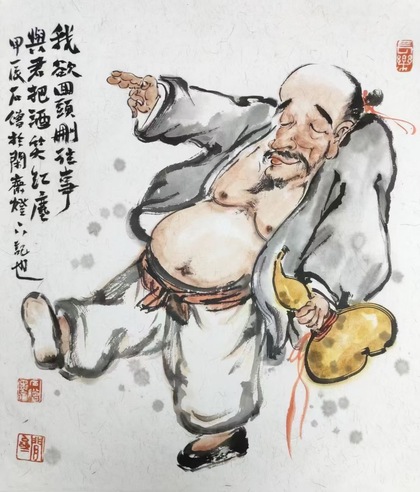 我欲回頭刪往事
與君把酒笑紅塵
甲辰石僧於閑齋燈下記也